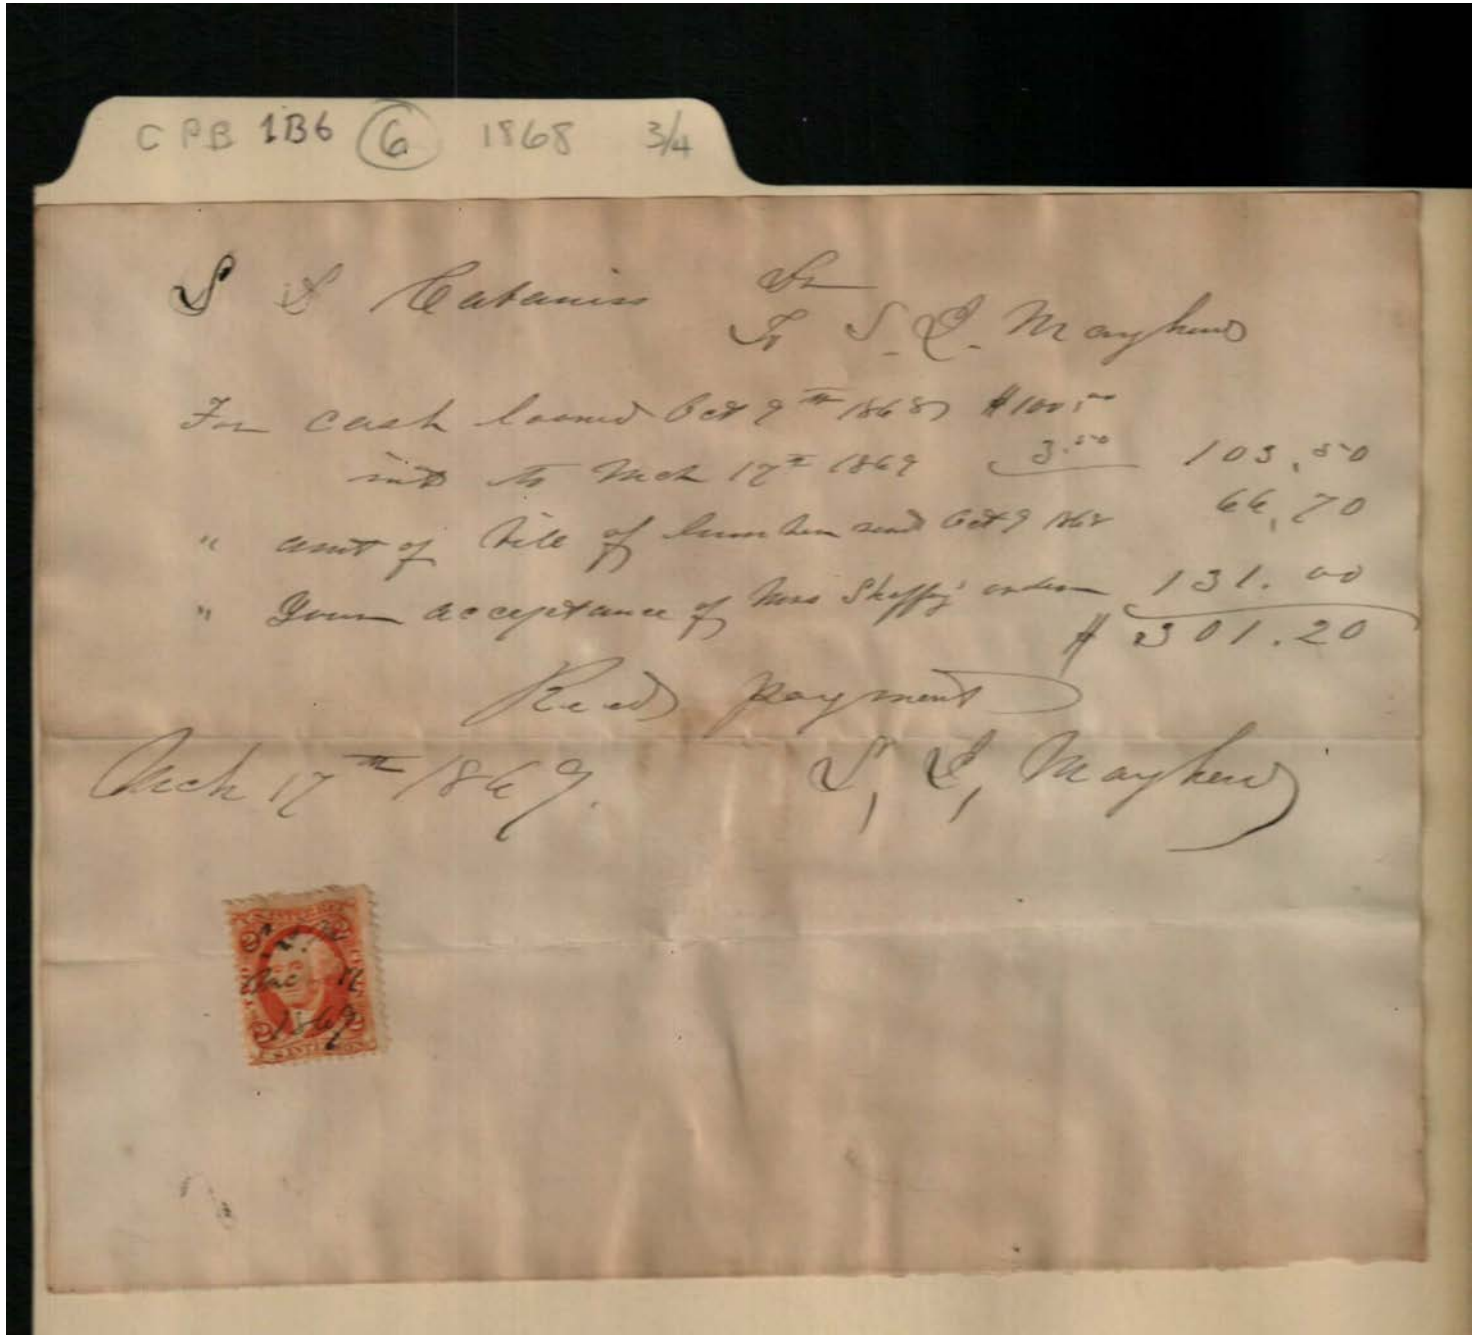 CPB 1B6 6 1868 3/4
S S Cabaniss Dr
To S. L. Mayhew
For cash loaned Oct 9th 1868 $100.00
int to Mch 17th 1869 3.50 103.50
" amt of bill of lumber rend Oct 9 1868 66,70
" Your acceptance of Mrs Sheffy's order 131.00
$ 301.20
Recd payment
Mch 17th 1869. S, L, Mayhew
1869